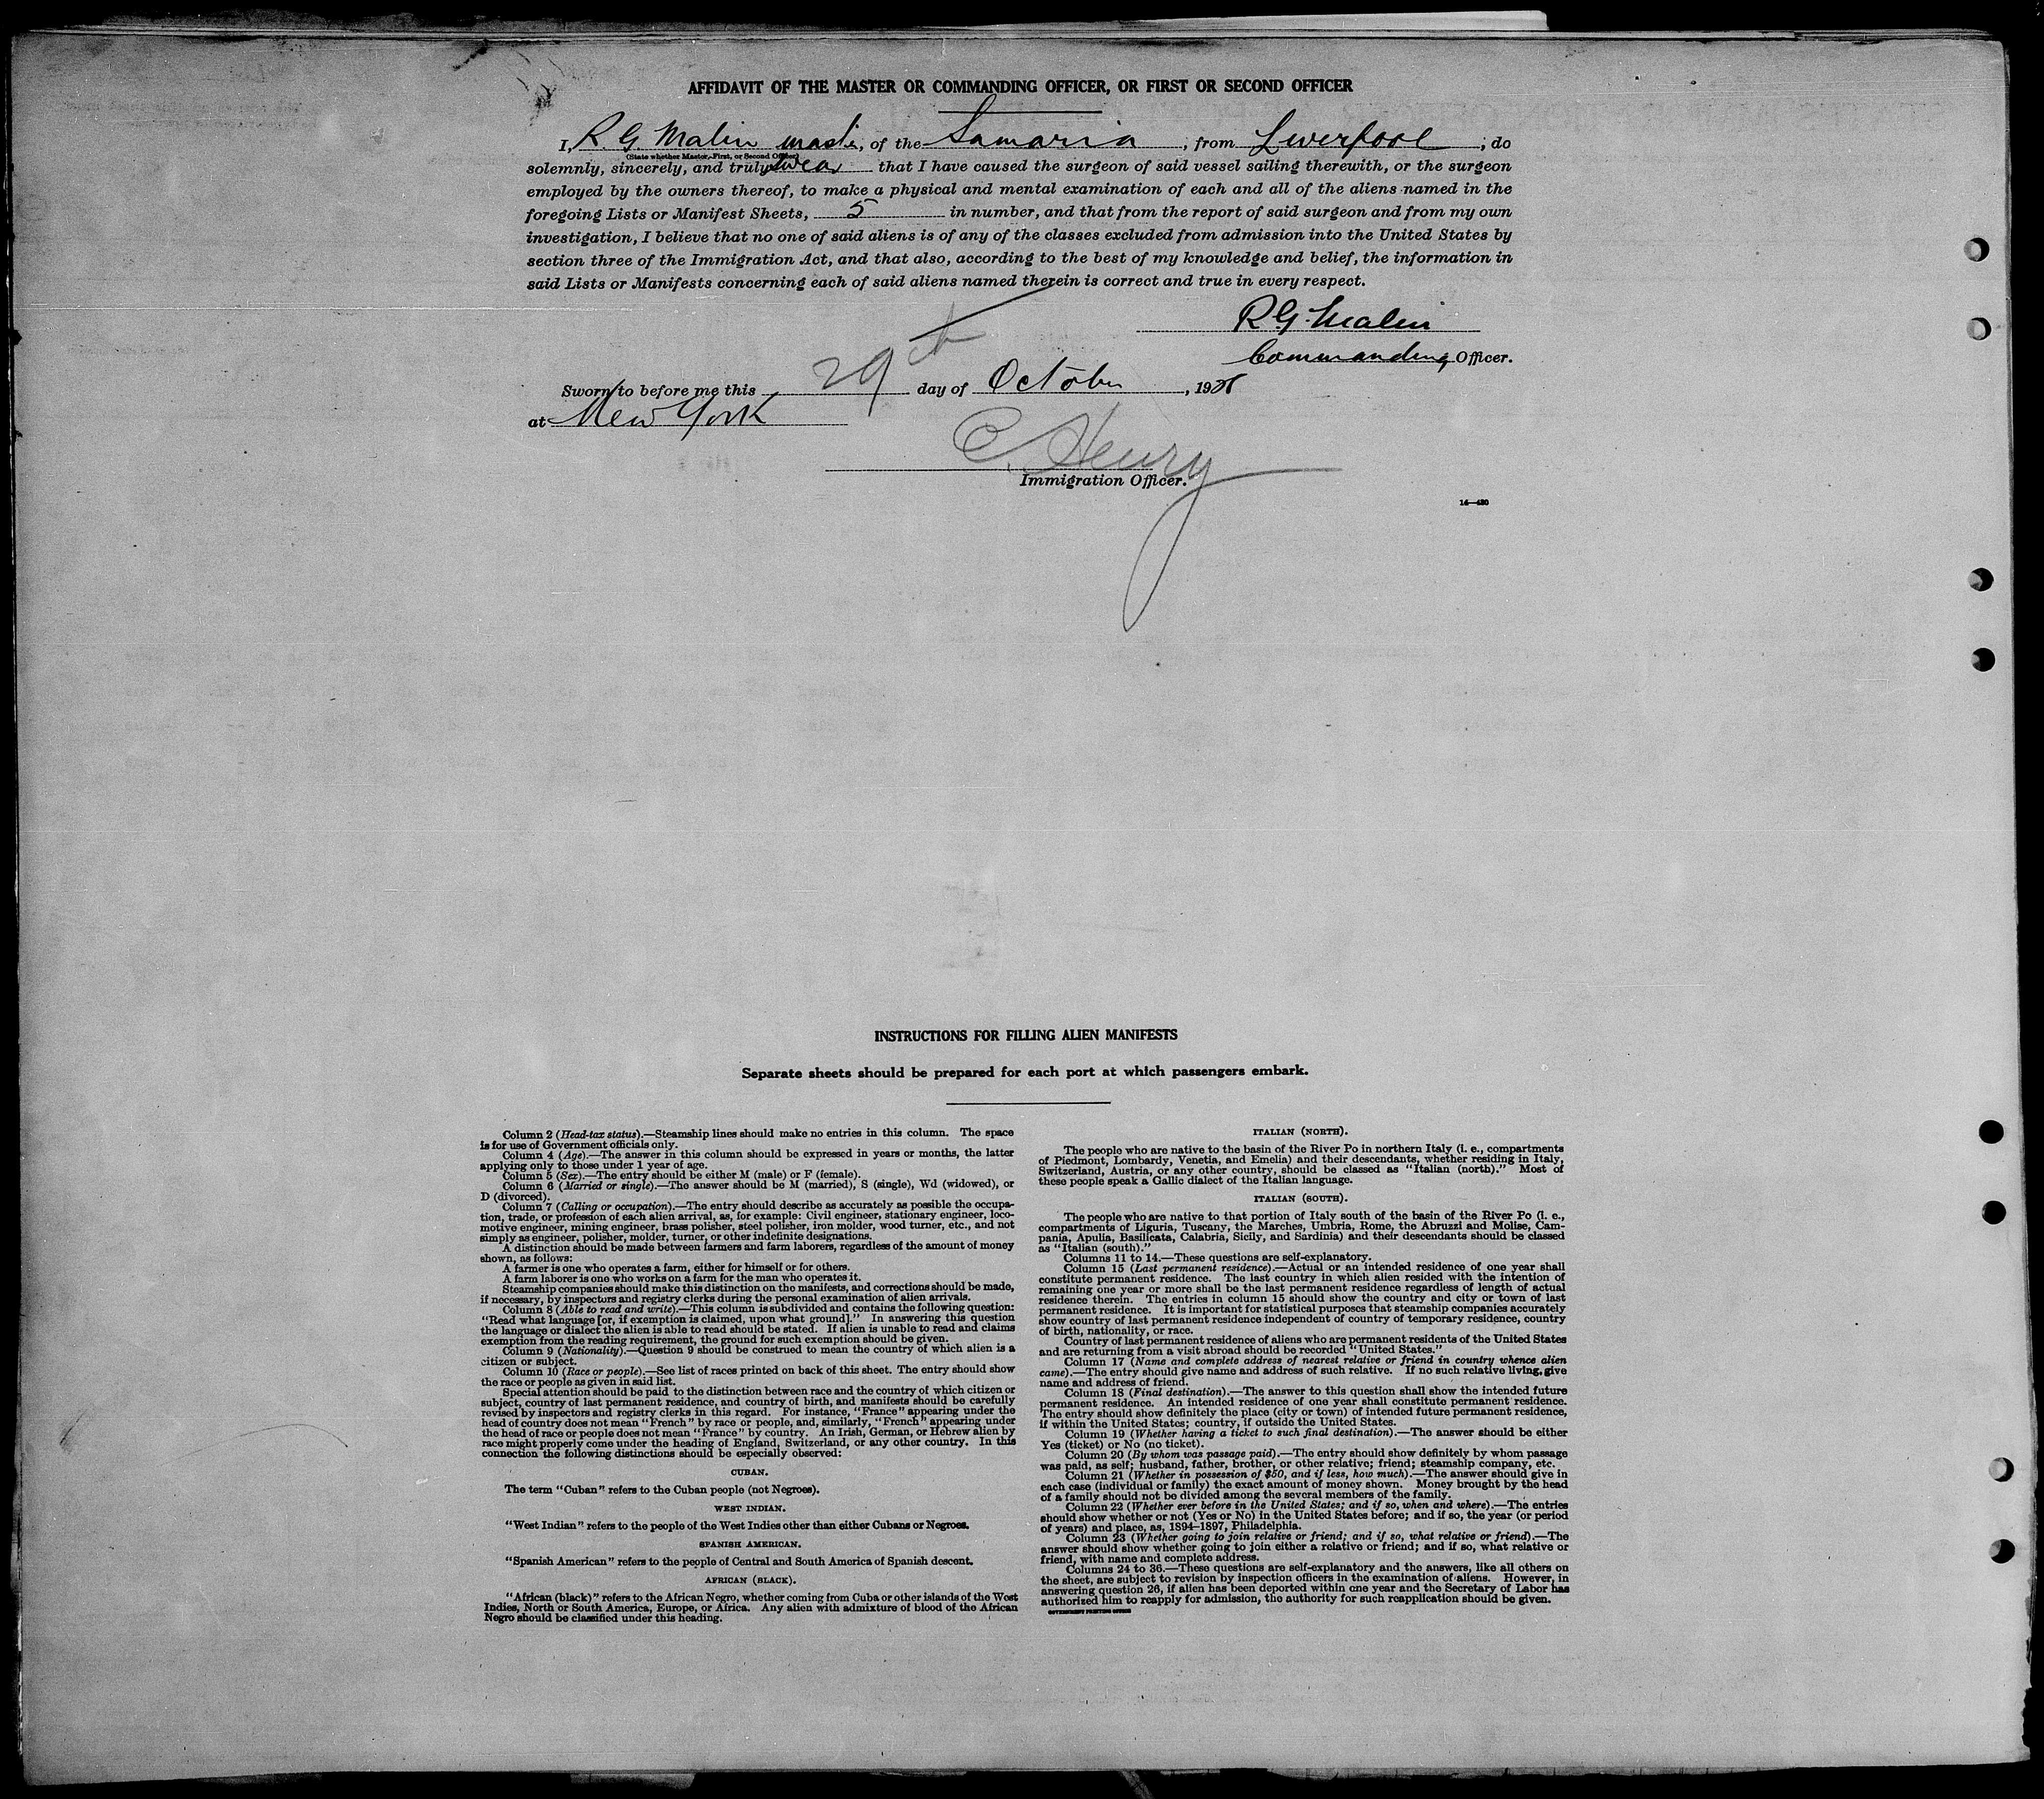 AFFIDAVIT OF THE MASTER OR COMMANDING OFFICER, OR FIRST OR SECOND OFFICER
I, R. G. Malin master, of the Samaria, from Liverpool, do
(State whether Master, First, or Second Officer)
solemnly, sincerely, and truly swear that I have caused the surgeon of said vessel sailing therewith, or the surgeon
employed by the owners thereof, to make a physical and mental examination of each and all of the aliens named in the
foregoing Lists or Manifest Sheets, 5 in number, and that from the report of said surgeon and from my own
investigation, I believe that no one of said aliens is of any of the classes excluded from admission into the United States by
section three of the Immigration Act, and that also, according to the best of my knowledge and belief, the information in
said Lists or Manifests concerning each of said aliens named therein is correct and true in every respect.
R.G. Malin
Commanding Officer.
Sworn to before me this 29th day of October, 19
at New York
C. Henry
Immigration Officer.
14—430
INSTRUCTIONS FOR FILLING ALIEN MANIFESTS
Separate sheets should be prepared for each port at which passengers embark.
Column 2 (Head-tax status).—Steamship lines should make no entries in this column. The space
is for use of Government officials only.
Column 4 (Age).—The answer in this column should be expressed in years or months, the latter
applying only to those under 1 year of age.
Column 5 (Sex).—The entry should be either M (male) or F (female).
Column 6 (Married or single).—The answer should be M (married), S (single), Wd (widowed), or
D (divorced).
Column 7 (Calling or occupation).—The entry should describe as accurately as possible the occupa-
tion, trade, or profession of each alien arrival, as, for example: Civil engineer, stationary engineer, loco-
motive engineer, mining engineer, brass polisher, steel polisher, iron molder, wood turner, etc., and not
simply as engineer, polisher, molder, turner, or other indefinite designations.
A distinction should be made between farmers and farm laborers, regardless of the amount of money
shown, as follows:
A farmer is one who operates a farm, either for himself or for others.
A farm laborer is one who works on a farm for the man who operates it.
Steamship companies should make this distinction on the manifests, and corrections should be made,
if necessary, by inspectors and registry clerks during the personal examination of alien arrivals.
Column 8 (Able to read and write).—This column is subdivided and contains the following question:
"Read what language [or, if exemption is claimed, upon what ground]." In answering this question
the language or dialect the alien is able to read should be stated. If alien is unable to read and claims
exemption from the reading requirement, the ground for such exemption should be given.
Column 9 (Nationality).—Question 9 should be construed to mean the country of which alien is a
citizen or subject.
Column 10 (Race or people).—See list of races printed on back of this sheet. The entry should show
the race or people as given in said list.
Special attention should be paid to the distinction between race and the country of which citizen or
subject, country of last permanent residence, and country of birth, and manifests should be carefully
revised by inspectors and registry clerks in this regard. For instance, "France" appearing under the
head of country does not mean "French" by race or people, and, similarly, "French" appearing under
the head of race or people does not mean "France" by country. An Irish, German, or Hebrew alien by
race might properly come under the heading of England, Switzerland, or any other country. In this
connection the following distinctions should be especially observed:
CUBAN.
The term "Cuban" refers to the Cuban people (not Negroes).
WEST INDIAN.
"West Indian" refers to the people of the West Indies other than either Cubans or Negroes.
SPANISH AMERICAN.
"Spanish American" refers to the people of Central and South America of Spanish descent.
AFRICAN (BLACK).
"African (black)" refers to the African Negro, whether coming from Cuba or other islands of the West
Indies, North or South America, Europe, or Africa. Any alien with admixture of blood of the African
Negro should be classified under this heading.
ITALIAN (NORTH).
The people who are native to the basin of the River Po in northern Italy (i. e., compartments
of Piedmont, Lombardy, Venetia, and Emelia) and their descendants, whether residing in Italy,
Switzerland, Austria, or any other country, should be classed as "Italian (north)." Most of
these people speak a Gallic dialect of the Italian language.
ITALIAN (SOUTH).
The people who are native to that portion of Italy south of the basin of the River Po (i. e.,
compartments of Liguria, Tuscany, the Marches, Umbria, Rome, the Abruzzi and Molise, Cam-
pania, Apulia, Basilicata, Calabria, Sicily, and Sardinia) and their descendants should be classed
as "Italian (south)."
Columns 11 to 14.—These questions are self-explanatory.
Column 15 (Last permanent residence).—Actual or an intended residence of one year shall
constitute permanent residence. The last country in which alien resided with the intention of
remaining one year or more shall be the last permanent residence regardless of length of actual
residence therein. The entries in column 15 should show the country and city or town of last
permanent residence. It is important for statistical purposes that steamship companies accurately
show country of last permanent residence independent of country of temporary residence, country
of birth, nationality, or race.
Country of last permanent residence of aliens who are permanent residents of the United States
and are returning from a visit abroad should be recorded "United States."
Column 17 (Name and complete address of nearest relative or friend in country whence alien
came).—The entry should give name and address of such relative. If no such relative living, give
name and address of friend.
Column 18 (Final destination).—The answer to this question shall show the intended future
permanent residence. An intended residence of one year shall constitute permanent residence.
The entry should show definitely the place (city or town) of intended future permanent residence,
if within the United States; country, if outside the United States.
Column 19 (Whether having a ticket to such final destination).—The answer should be either
Yes (ticket) or No (no ticket).
Column 20 (By whom was passage paid).—The entry should show definitely by whom passage
was paid, as self; husband, father, brother, or other relative; friend; steamship company, etc.
Column 21 (Whether in possession of $50, and if less, how much).—The answer should give in
each case (individual or family) the exact amount of money shown. Money brought by the head
of a family should not be divided among the several members of the family.
Column 22 (Whether ever before in the United States; and if so, when and where).—The entries
should show whether or not (Yes or No) in the United States before; and if so, the year (or period
of years) and place, as, 1894–1897, Philadelphia.
Column 23 (Whether going to join relative or friend; and if so, what relative or friend).—The
answer should show whether going to join either a relative or friend; and if so, what relative or
friend, with name and complete address.
Columns 24 to 36.—These questions are self-explanatory and the answers, like all others on
the sheet, are subject to revision by inspection officers in the examination of aliens. However, in
answering question 26, if alien has been deported within one year and the Secretary of Labor has
authorized him to reapply for admission, the authority for such reapplication should be given.
GOVERNMENT PRINTING OFFICE